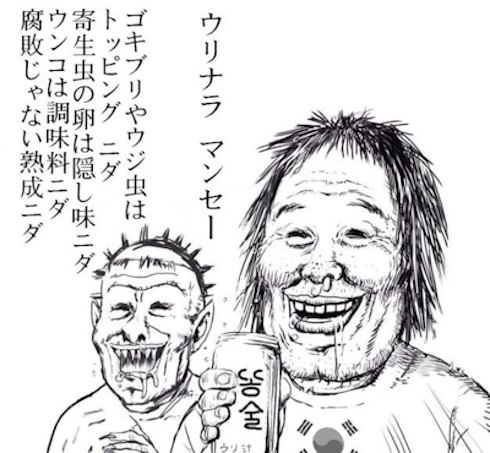 ウリナラ マンセー
ゴキブリやウジ虫は
トッピング ニダ
寄生虫の卵は隠し味ニダ
ウンコは調味料ニダ
腐敗じゃない熟成ニダ
똥술